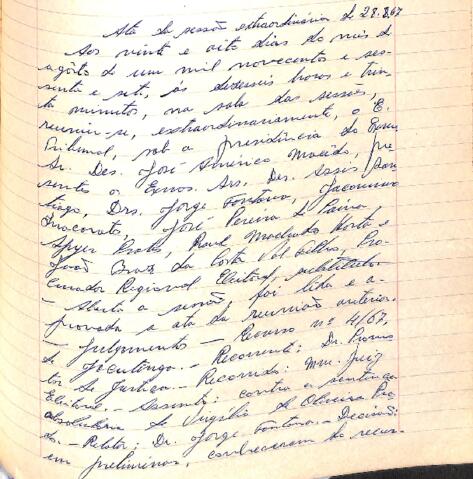 Ata da sessão extraordinária de 28.8.67
Aos vinte e oito dias do mês de
agôsto de um mil novecentos e ses-
senta e sete, às dezesseis horas e trin-
ta minutos, na sala das sessões,
reuniu-se, extraordinariamente, o E.
Tribunal, sob a presidência do Exmo.
Sr. Des. José Américo Macêdo, pre-
sentes os Exmos. Srs. Des. Assis San-
tiago, Drs. Jorge Fontana,
José Pereira de Paiva,
Prates, Raul Machado Horta e
João Braz da Costa Val Filho, Pro-
curador Regional Eleitoral, substituto.
- Aberta a sessão, foi lida e a-
provada a ata da reunião anterior.
- Julgamento - Recurso nº 4/67,
de Jacutinga. - Recorrente: Dr. Promo-
tor de Justiça. - Recorrido: Mm. Juiz
Eleitoral. - Assunto: contra a sentença
absolutória de Virgílio de Oliveira
- Relator: Dr. Jorge Fontana. - Decisão:
em preliminar, conheceram do recur-